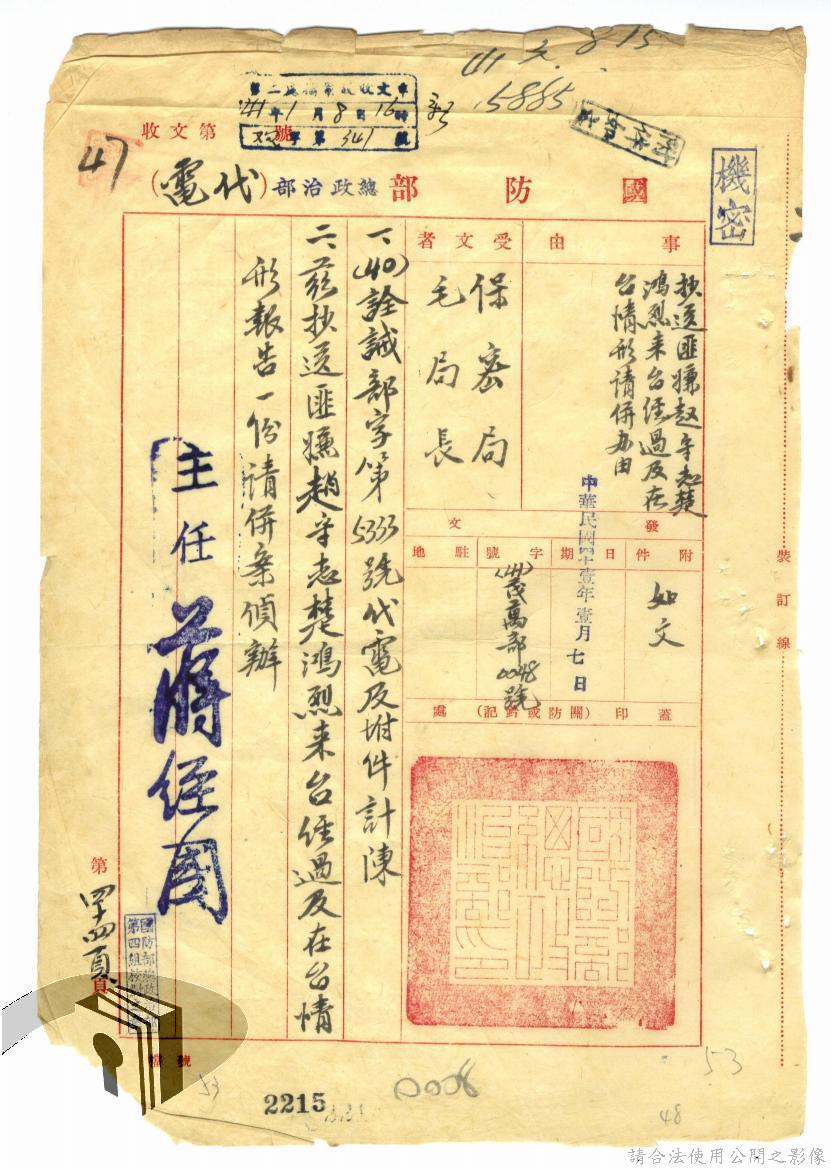 41元.815
5885
年1月8日16時
字第341號
收文第 號
47
機密
國防部總政治部(代電)
事由
抄送匪嫌趙守志楚
鴻烈來台經過及在
台情形請併办由
受文者
保密局
毛局長
發文
附件
如文
日期
中華民國四十壹年壹月七日
字號
(41)茂萬部0048號
駐地
蓋印(關防或鈐記)處
一、(40)詮誠部字第5333號代電及坿件計陳
二、茲抄送匪嫌趙守志楚鴻烈來台經過及在台情
形報告一份請併案偵辦
主任蔣經國
第四十四頁頁
裝訂線
檔號
2215
0008
53
53
48
請合法使用公開之影像